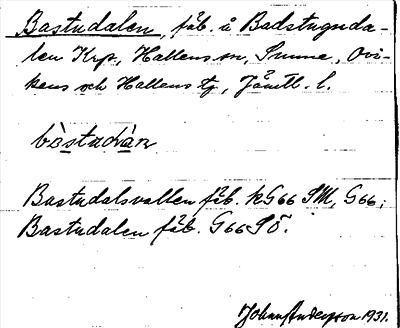 Bastudalen, fäb. å Badstuguda-
len Krp, Hallens sn, Sunne, Ovi-
kens och Hallens tg, Jämtl. l.
bàstudàn
Bastudalsvallen fäb. kG66 SM, G66;
Bastudalen fäb. G66 SÖ.
Johan Anderson 1931.